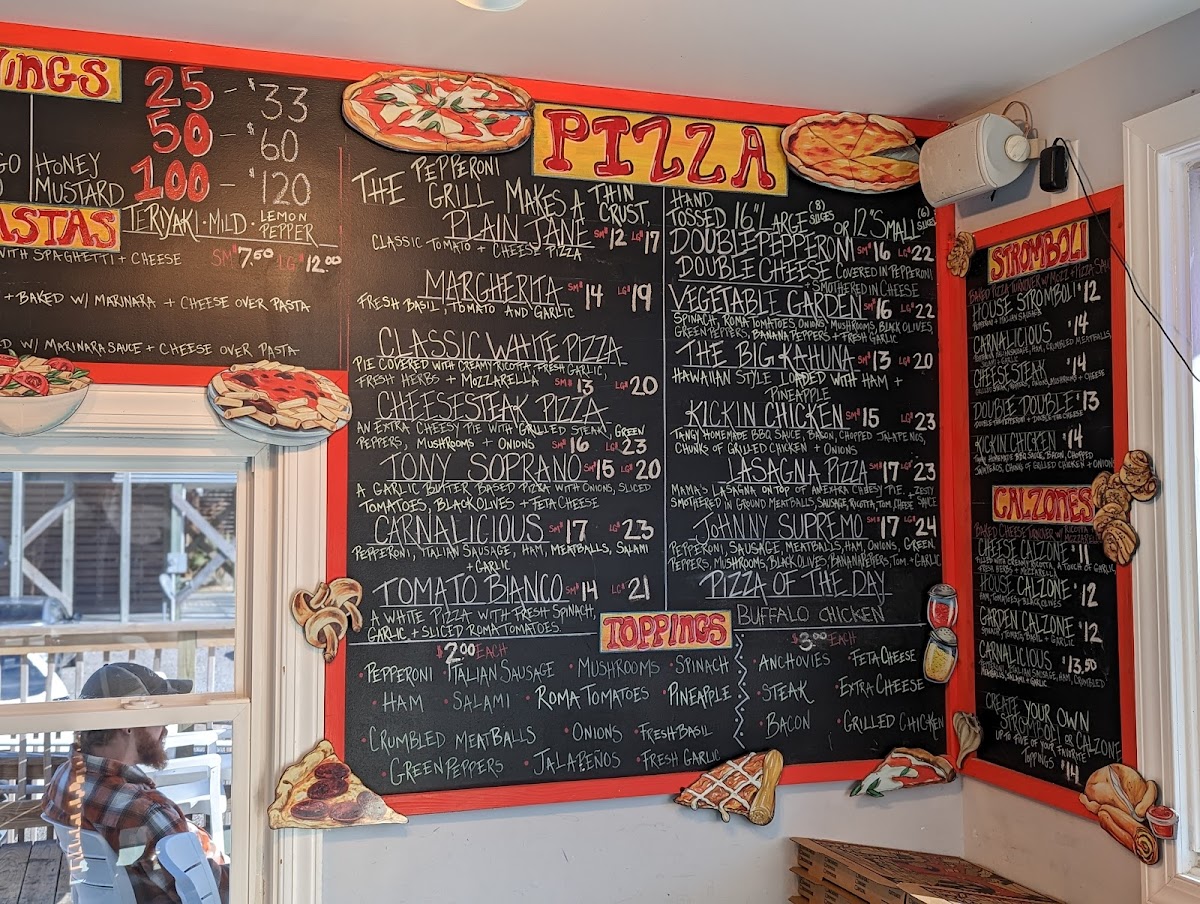 WINGS
25 - $33
50 - $60
100 - $120
HONEY
MUSTARD
TERIYAKI · MILD · LEMON PEPPER
PASTAS
WITH SPAGHETTI + CHEESE SM $7.50 LG $12.00
+ BAKED W/ MARINARA + CHEESE OVER PASTA
W/ MARINARA SAUCE + CHEESE OVER PASTA
PIZZA
THE PEPPERONI GRILL MAKES A THIN CRUST,
HAND
TOSSED 16" LARGE (8) SLICES OR 12" SMALL (6) SLICES
PLAIN JANE SM $12 LG $17
CLASSIC TOMATO + CHEESE PIZZA
MARGHERITA SM $14 LG $19
FRESH BASIL, TOMATO AND GARLIC
CLASSIC WHITE PIZZA
PIE COVERED WITH CREAMY RICOTTA, FRESH GARLIC,
FRESH HERBS + MOZZARELLA SM $13 LG $20
CHEESESTEAK PIZZA
AN EXTRA CHEESY PIE WITH GRILLED STEAK, GREEN
PEPPERS, MUSHROOMS + ONIONS SM $16 LG $23
TONY SOPRANO SM $15 LG $20
A GARLIC BUTTER BASED PIZZA WITH ONIONS, SLICED
TOMATOES, BLACK OLIVES + FETA CHEESE
CARNALICIOUS SM $17 LG $23
PEPPERONI, ITALIAN SAUSAGE, HAM, MEATBALLS, SALAMI
+ GARLIC
TOMATO BIANCO SM $14 LG $21
A WHITE PIZZA WITH FRESH SPINACH
GARLIC + SLICED ROMA TOMATOES.
DOUBLE PEPPERONI SM $16 LG $22
DOUBLE CHEESE COVERED IN PEPPERONI
+ SMOTHERED IN CHEESE
VEGETABLE GARDEN SM $16 LG $22
SPINACH, ROMA TOMATOES, ONIONS, MUSHROOMS, BLACK OLIVES,
GREEN PEPPERS, BANANA PEPPERS + FRESH GARLIC
THE BIG KAHUNA SM $13 LG $20
HAWAIIAN STYLE LOADED WITH HAM +
PINEAPPLE
KICKIN CHICKEN SM $15 LG $23
TANGY HOMEMADE BBQ SAUCE, BACON, CHOPPED JALAPENOS,
CHUNKS OF GRILLED CHICKEN + ONIONS
LASAGNA PIZZA SM $17 LG $23
MAMA'S LASAGNA ON TOP OF AN EXTRA CHEESY PIE + ZESTY
SMOTHERED IN GROUND MEATBALLS, SAUSAGE, RICOTTA, TOM, CHEESE SAUCE
JOHNNY SUPREMO SM $17 LG $24
PEPPERONI, SAUSAGE, MEATBALLS, HAM, ONIONS, GREEN
PEPPERS, MUSHROOMS, BLACK OLIVES, BANANA PEPPERS, TOM. + GARLIC
PIZZA OF THE DAY
BUFFALO CHICKEN
TOPPINGS
$2.00 EACH
· PEPPERONI · ITALIAN SAUSAGE · MUSHROOMS · SPINACH
· HAM · SALAMI · ROMA TOMATOES · PINEAPPLE
· CRUMBLED MEATBALLS · ONIONS · FRESH BASIL
· GREEN PEPPERS · JALAPEÑOS · FRESH GARLIC
$3.00 EACH
· ANCHOVIES · FETA CHEESE
· STEAK · EXTRA CHEESE
· BACON · GRILLED CHICKEN
STROMBOLI
HOUSE STROMBOLI $12
PEPPERONI + ITALIAN SAUSAGE
CARNALICIOUS $14
CHEESESTEAK $14
DOUBLE DOUBLE $13
DOUBLE THE PEPPERONI + DOUBLE THE CHEESE
KICKIN CHICKEN $14
TANGY HOMEMADE BBQ SAUCE, BACON, CHOPPED
JALAPENOS, CHUNKS OF GRILLED CHICKEN + ONION
CALZONES
CHEESE CALZONE $11
FILLED WITH CREAMY RICOTTA, A TOUCH OF GARLIC,
FRESH HERBS + MOZZARELLA
HOUSE CALZONE $12
HAM, TOMATOES, BLACK OLIVES
GARDEN CALZONE $12
SPINACH, TOMATO, BASIL + GARLIC
CARNALICIOUS $13.50
CREATE YOUR OWN
STROMBOLI OR CALZONE
UP TO FIVE OF YOUR FAVORITE
TOPPINGS $14